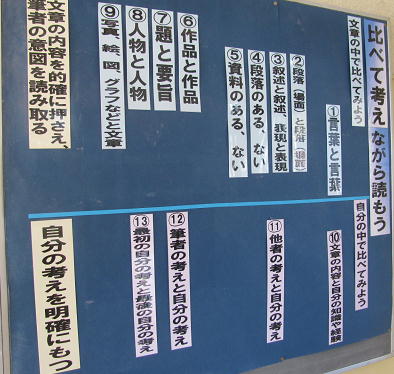 比べて考えながら読もう
文章の中で比べてみよう
①言葉と言葉
②段落（場面）と段落（場面）
③叙述と叙述、表現と表現
④段落のある、ない
⑤資料のある、ない
⑥作品と作品
⑦題と要旨
⑧人物と人物
⑨写真、絵、図、グラフなどと文章
文章の内容を的確に押さえ、
筆者の意図を読み取る
自分の中で比べてみよう
⑩文章の内容と自分の知識や経験
⑪他者の考えと自分の考え
⑫筆者の考えと自分の考え
⑬最初の自分の考えと最後の自分の考え
自分の考えを明確にもつ